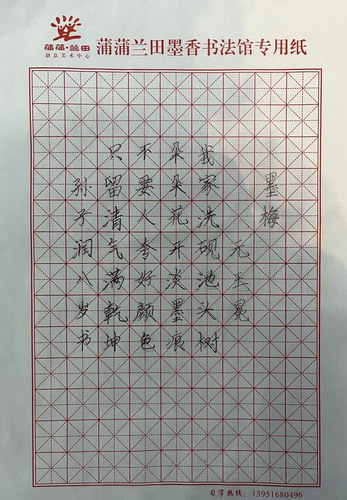 蒲蒲·兰田
创意美术中心
蒲蒲兰田墨香书法馆专用纸
墨梅
元王冕
我家洗砚池头树
朵朵花开淡墨痕
不要人夸好颜色
只留清气满乾坤
孙子润八岁书
习字热线：13951680496